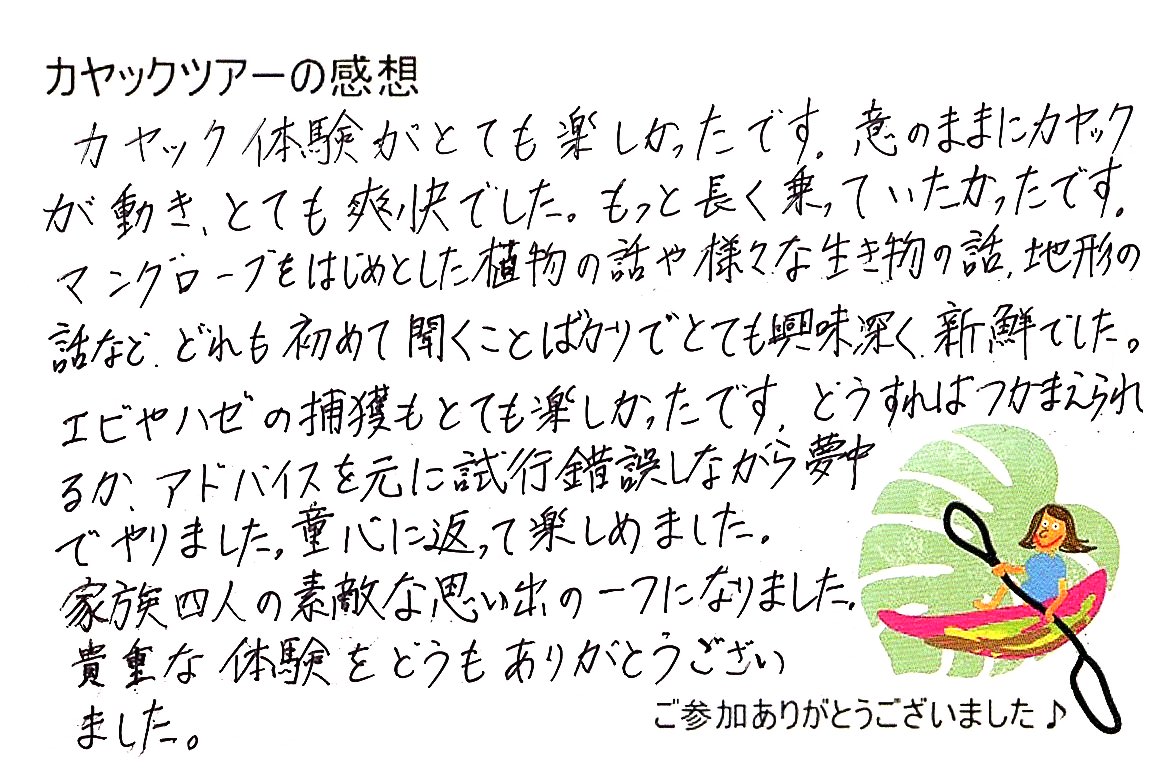 カヤックツアーの感想
カヤック体験がとても楽しかったです。意のままにカヤック
が動き、とても爽快でした。もっと長く乗っていたかったです。
マングローブをはじめとした植物の話や様々な生き物の話、地形の
話など、どれも初めて聞くことばかりでとても興味深く、新鮮でした。
エビやハゼの捕獲もとても楽しかったです。どうすればつかまえられ
るか、アドバイスを元に試行錯誤しながら夢中
でやりました。童心に返って楽しめました。
家族四人の素敵な思い出の一つになりました。
貴重な体験をどうもありがとうござい
ました。
ご参加ありがとうございました♪